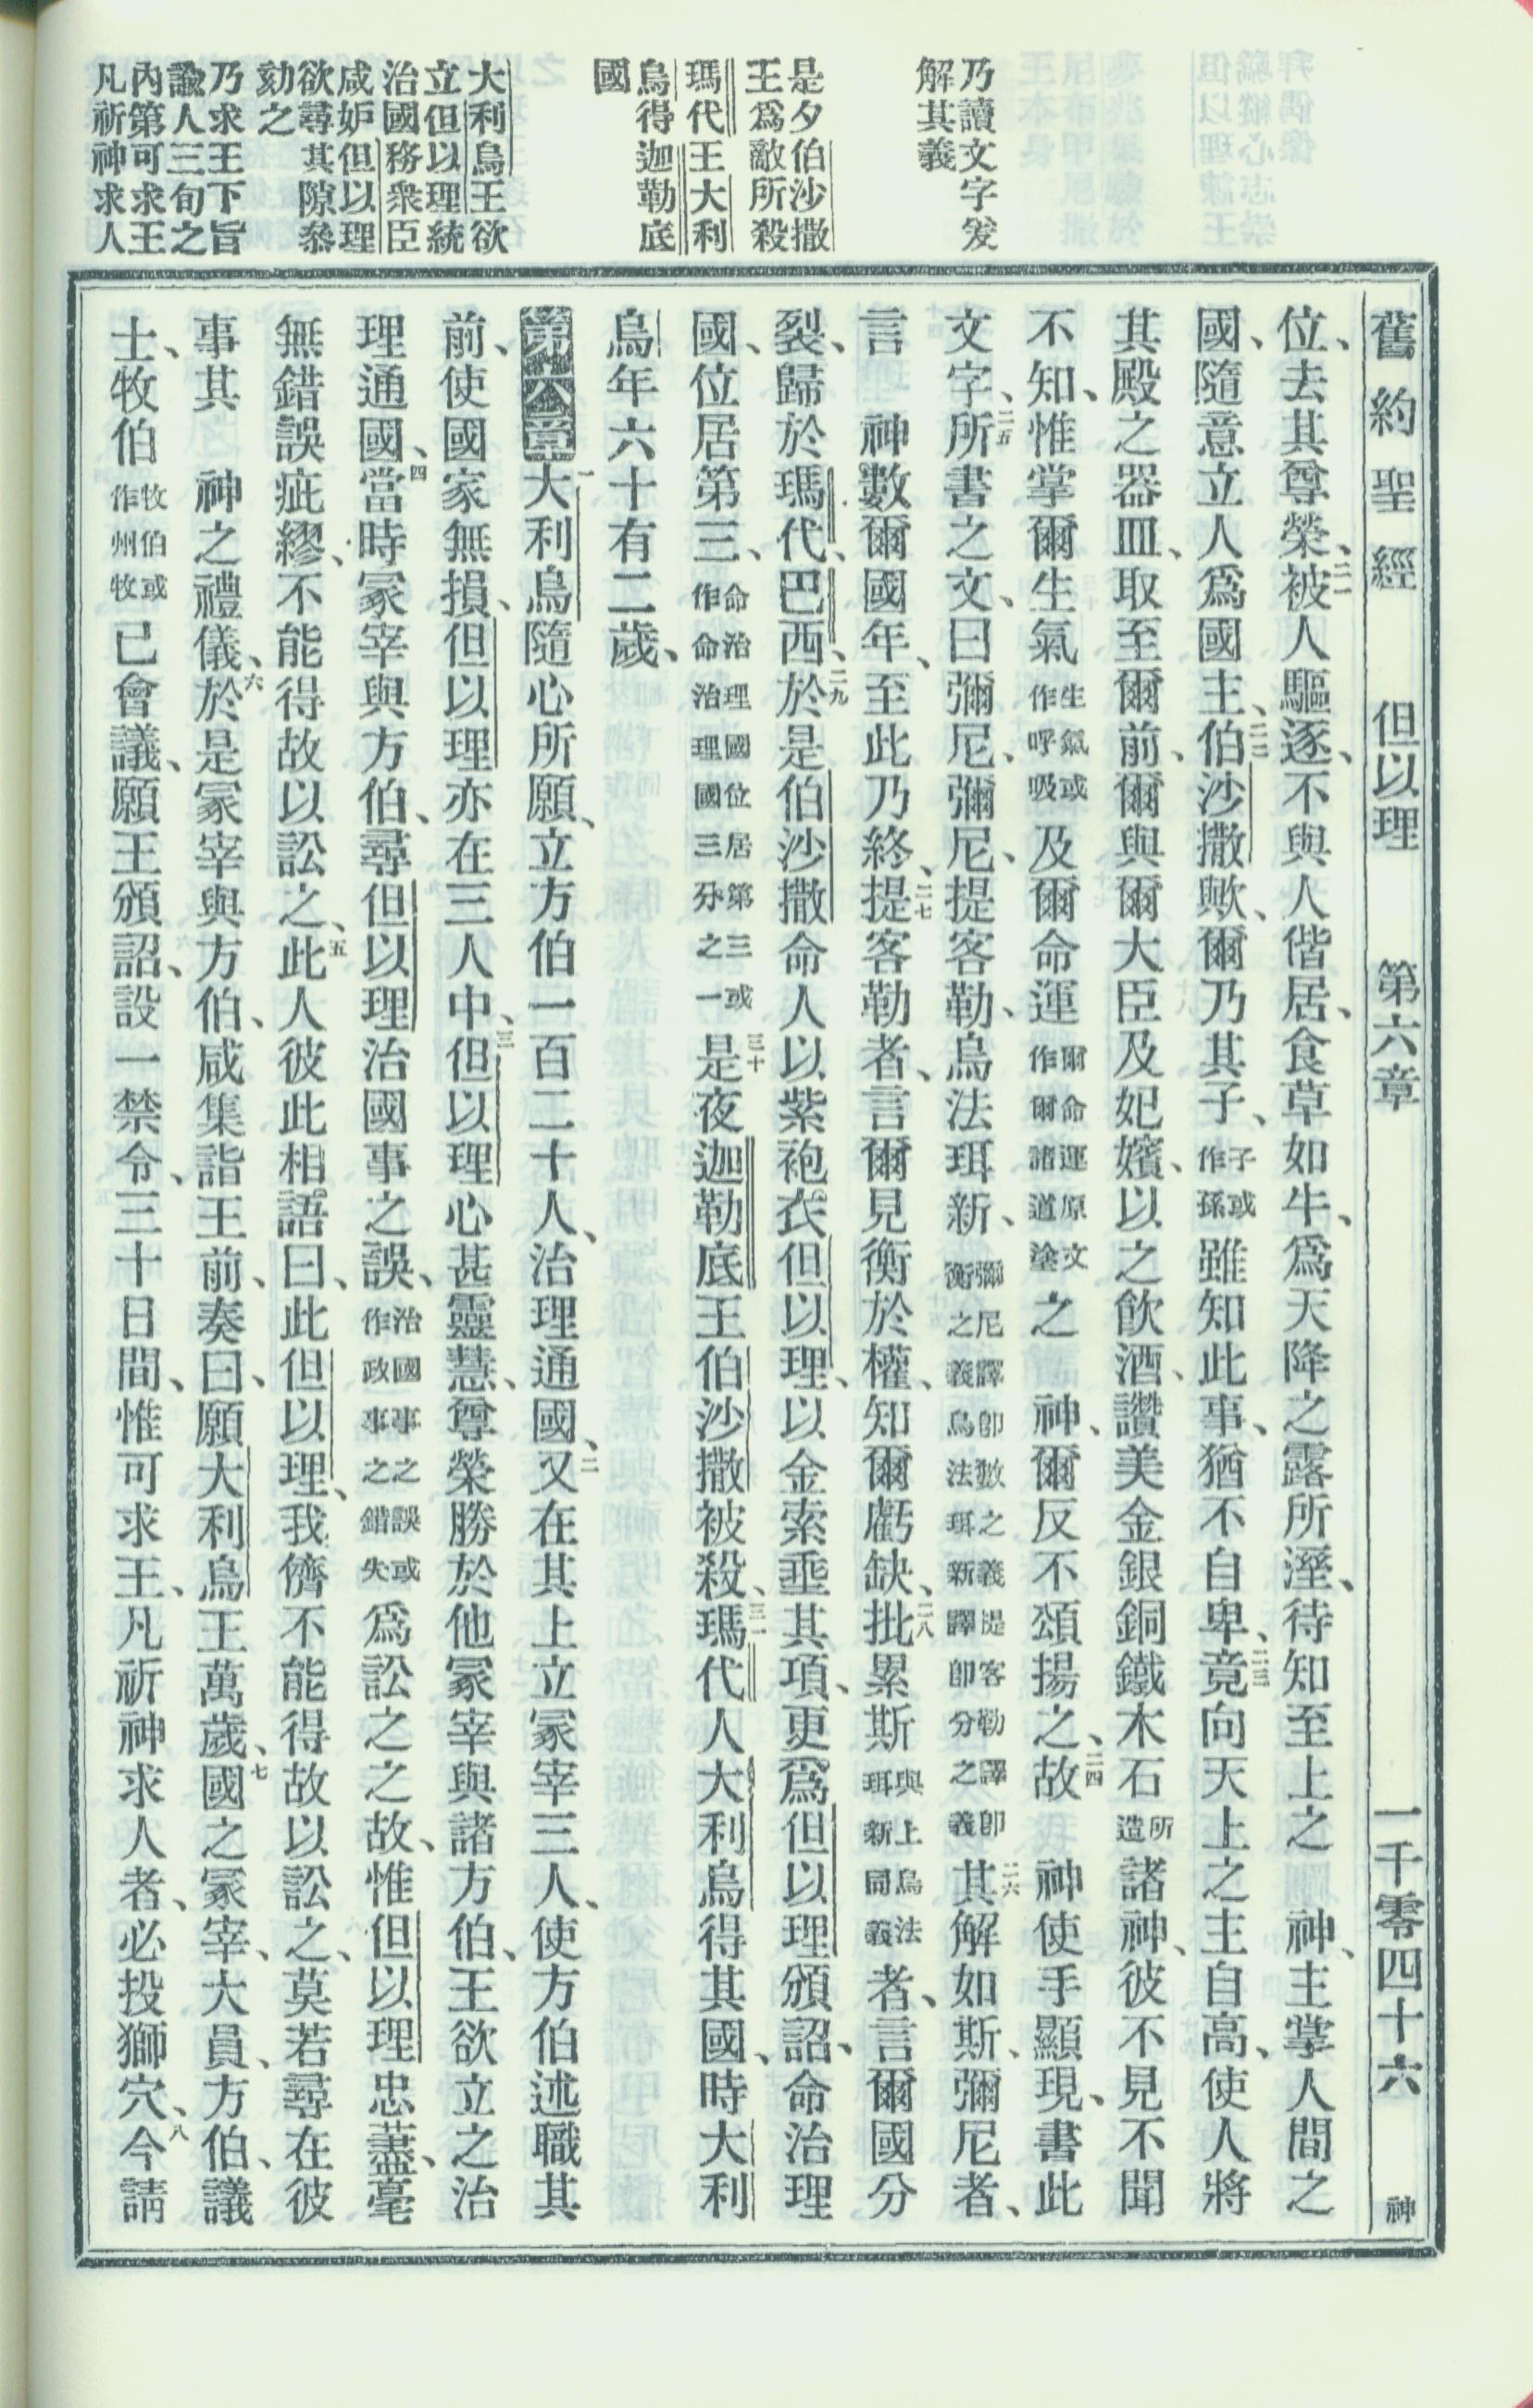 舊約聖經 但以理 第六章 一千零四十六 神
乃讀文字发
解其義
是夕伯沙撒
王爲敵所殺
瑪代王大利
烏得迦勒底
國
大利烏王欲
立但以理統
治國務衆臣
咸妒但以理
欲尋其隙叅
劾之
乃求王下旨
諭人三旬之
內第可求王
凡祈神求人
位、去其尊榮、二一被人驅逐、不與人偕居、食草如牛、爲天降之露所溼、待知至上之 神、主掌人間之
國、隨意立人爲國主、二二伯沙撒歟、爾乃其子、子或作孫雖知此事、猶不自卑、二三竟向天上之主自高、使人將
其殿之器皿、取至爾前、爾與爾大臣及妃嬪、以之飲酒、讚美金銀銅鐵木石所造諸神、彼不見不聞
不知、惟掌爾生氣生氣或作呼吸及爾命運爾命運原文作爾諸道塗之 神、爾反不頌揚之、二四故 神使手顯現、書此
文字、二五所書之文、曰彌尼、彌尼、提客勒、烏法珥新、彌尼譯卽數之義提客勒譯卽衡之義烏法珥新譯卽分之義二六其解如斯、彌尼者、
言 神數爾國年、至此乃終、二七提客勒者、言爾見衡於權、知爾虧缺、二八批累斯與上烏法珥新同義者、言爾國分
裂、歸於瑪代、巴西、二九於是伯沙撒命人以紫袍衣但以理、以金索垂其項、更爲但以理頒詔、命治理
國、位居第三、命治理國位居第三或作命治理國三分之一三十是夜迦勒底王伯沙撒被殺、三一瑪代人大利烏得其國、時大利
烏年六十有二歲、
第六章一大利烏隨心所願、立方伯一百二十人、治理通國、二又在其上立冢宰三人、使方伯述職其
前、使國家無損、但以理亦在三人中、三但以理心甚靈慧、尊榮勝於他冢宰與諸方伯、王欲立之治
理通國、四當時冢宰與方伯、尋但以理治國事之誤、治國事之誤或作政事之錯失爲訟之之故、惟但以理忠藎、毫
無錯誤疵繆、不能得故以訟之、五此人彼此相語曰、此但以理、我儕不能得故以訟之、莫若尋在彼
事其 神之禮儀、六於是冢宰與方伯、咸集詣王前、奏曰、願大利烏王萬歲、七國之冢宰、大員、方伯、議
士、牧伯牧伯或作州牧已會議、願王頒詔、設一禁令、三十日間、惟可求王、凡祈神求人者、必投獅穴、八今請